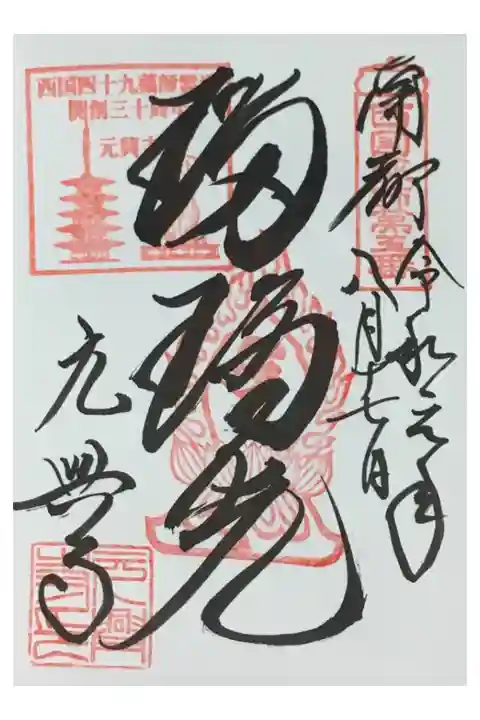 南都
令和元年
八月十七日
瑠璃光
元興寺
西国四十九薬師霊
開創三十周
元興